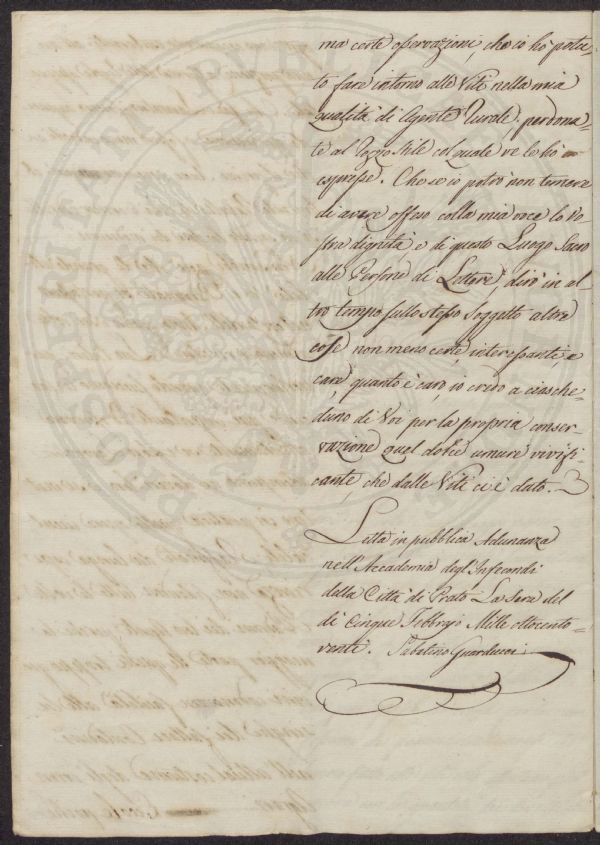 ma certe osservazioni, che io hò potu-
to fare intorno alle Viti nella mia
qualità di Agente Rurale: perdona-
te al Rozzo Stile col quale ve le hò
espresse. Che se io potrò non temere
di avere offeso colla mia voce la Vo-
stra dignità, e di questo Luogo Sacro
alle Persone di Lettere, dirò in al-
tro tempo sullo stesso Soggetto altre
cose non meno certe, interessanti, e
care, quanto è caro, io credo a ciasche-
duno di Voi per la propria conser-
vazione quel dolce umore vivifi-
cante, che dalle Viti ci è dato.
Letta in pubblica Adunanza
nell'Accademia degl'Infecondi
della Città di Prato La Sera del
dì Cinque Febbrajo Mille ottocento-
venti. Sabatino Guarducci